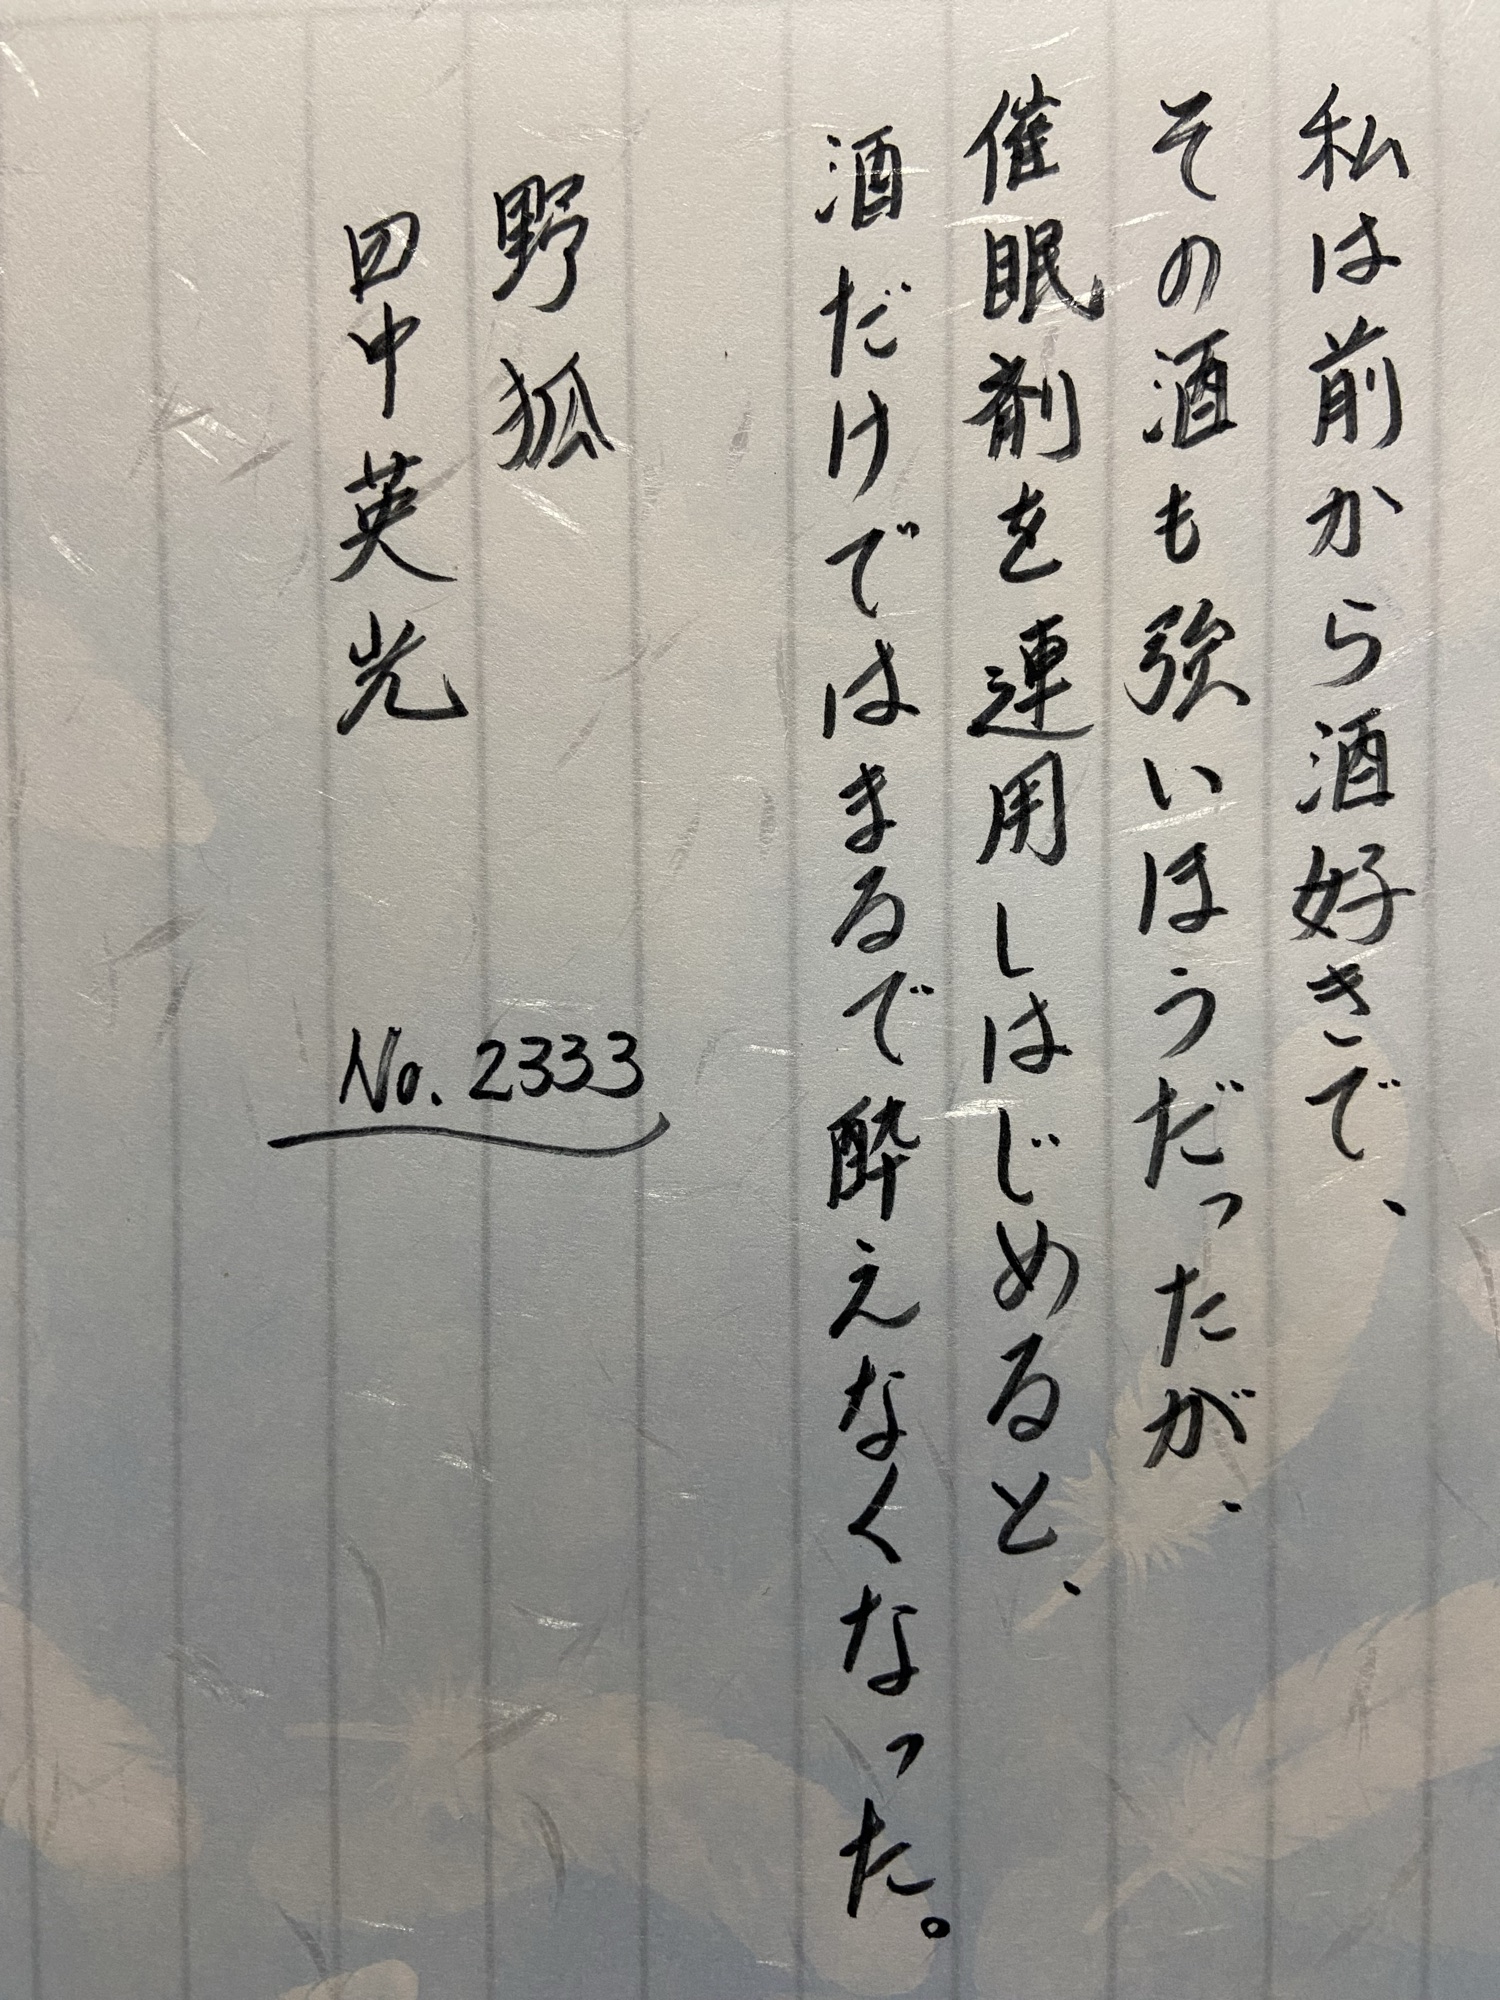 私は前から酒好きで、
その酒も強いほうだったが、
催眠剤を連用しはじめると、
酒だけではまるで酔えなくなった。
野狐
田中英光
No.2333